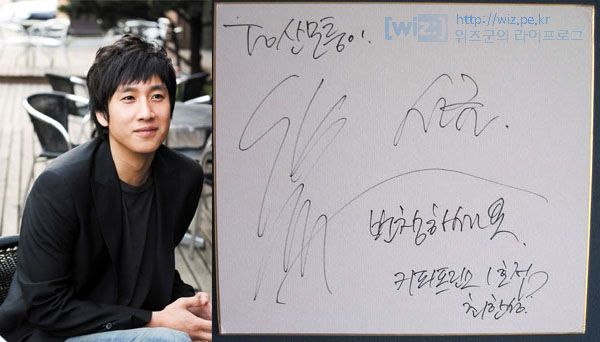 [wiz:] http://wiz.pe.kr
위즈군의 라이프로그
To 산모퉁이.
번창하세요.
커피프린스 1호점
최한성.